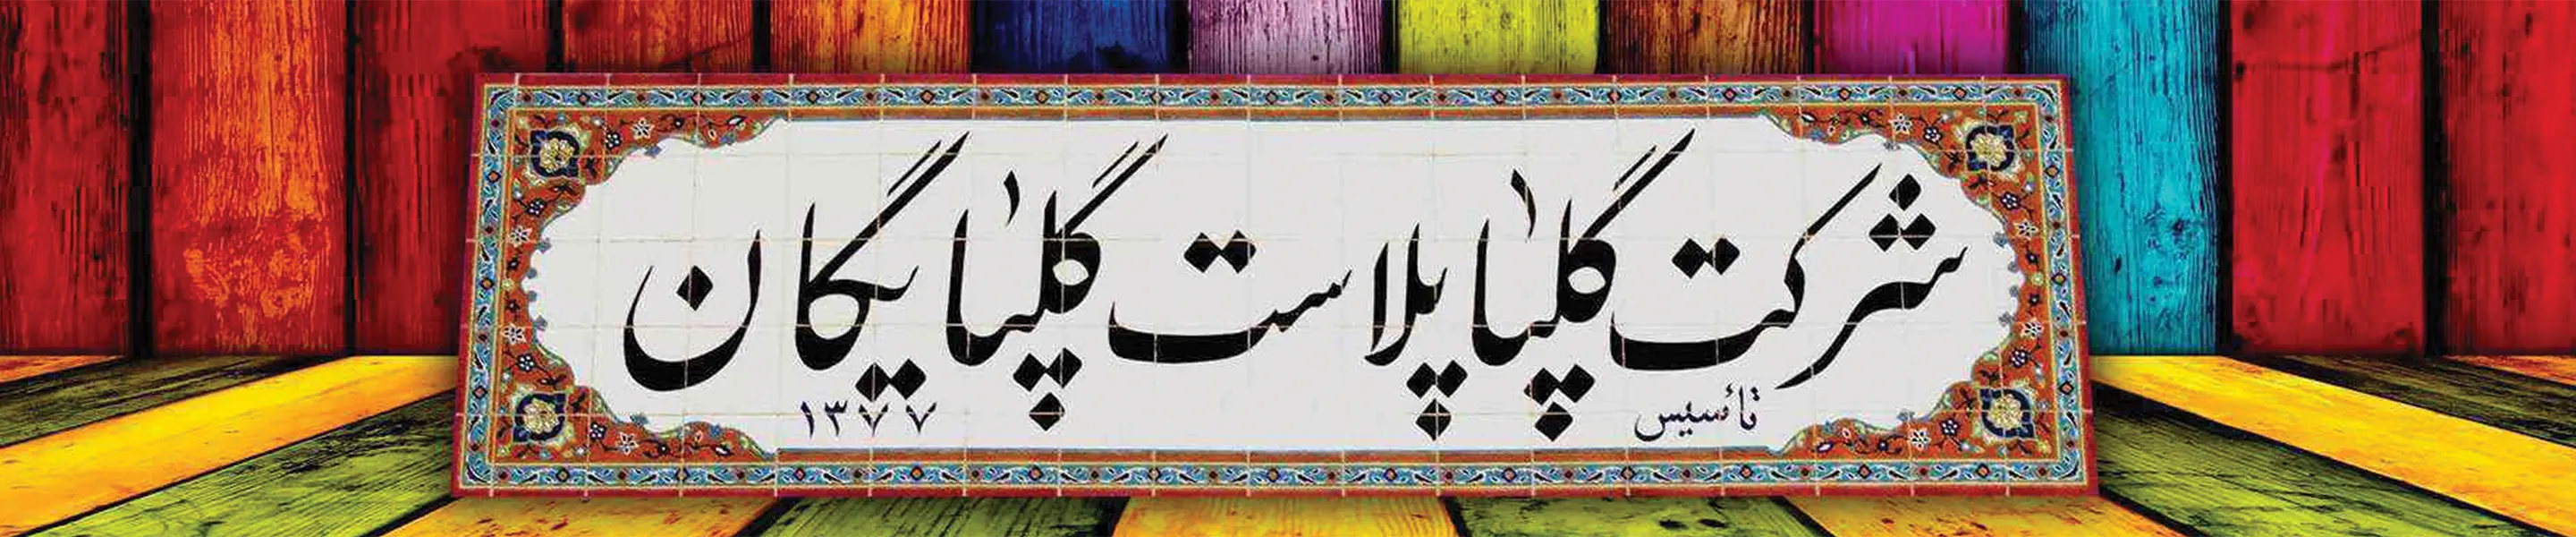 شرکت گلپا پلاست گلپایگان
تأسیس ۱۳۷۷